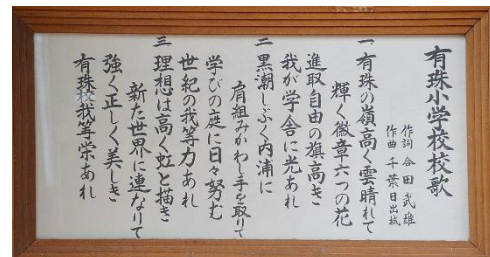 有珠小学校校歌
作詞 合田武雄
作曲 千葉日出城
一 有珠の嶺高く雲晴れて
輝く徽章六つの花
進取自由の旗高き
我が学舎に光あれ
二 黒潮しぶく内浦に
肩組みかわし手を取りて
学びの庭に日々努む
世紀の我等力あれ
三 理想は高く虹と描き
新た世界に連なりて
強く正しく美しき
有珠校我等栄あれ